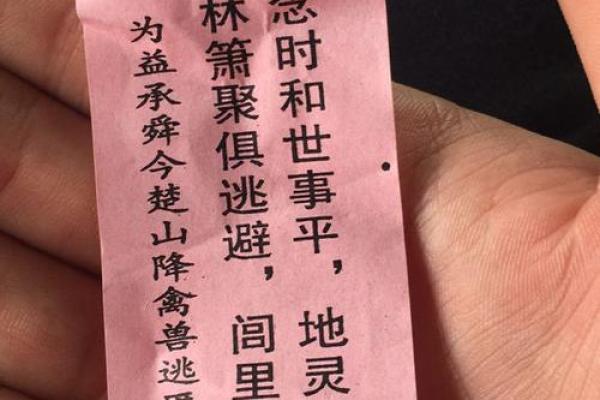 念时和世事平，地灵
林箫聚俱逃避，闾里
为益承舜今楚山降禽兽逃匿